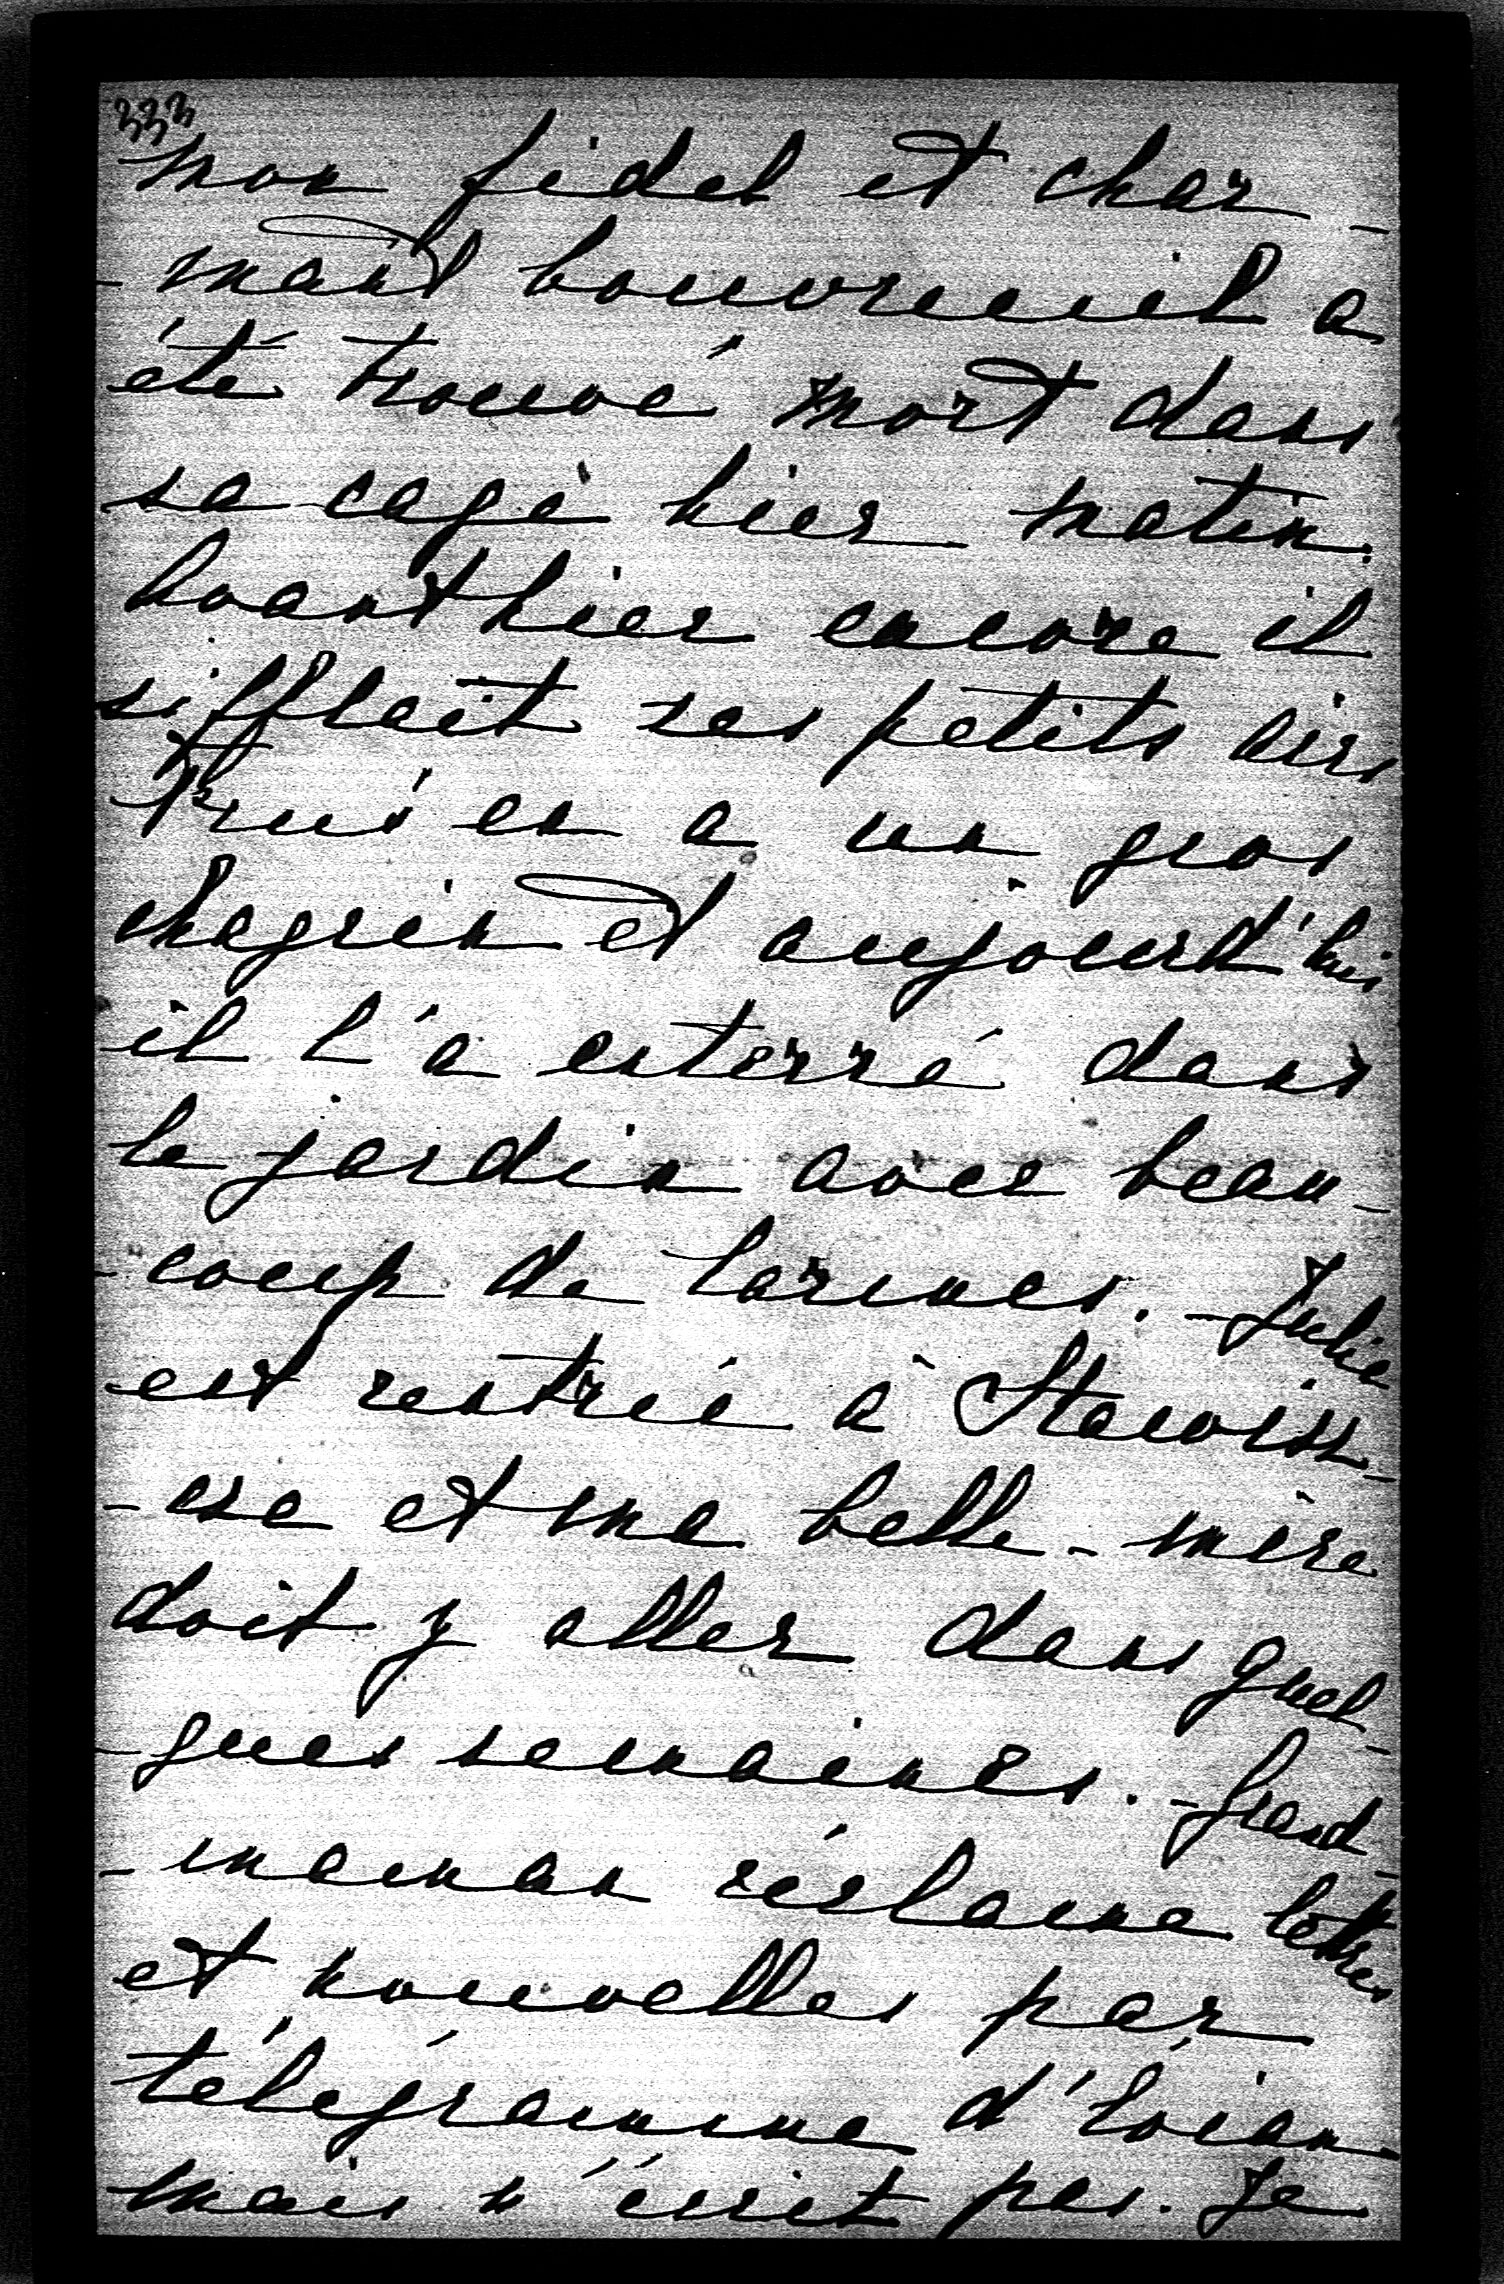 333
mon fidel et char-
-mant bouvreuil a
été trouvé mort dans
sa cage hier matin.
Avanthier encore il
sifflait ses petits airs
en a un gros
chagrin et aujourd'hui
il l'a enterré dans
le jardin avec beau-
-coup de larmes. - Julie
est rentrée à Stawiss-
-cze et ma belle-mère
doit y aller dans quel-
-ques semaines. - Grand-
-maman réclame lettres
et nouvelles par
télégramme d'Evian
mais n'écrit pas. Je